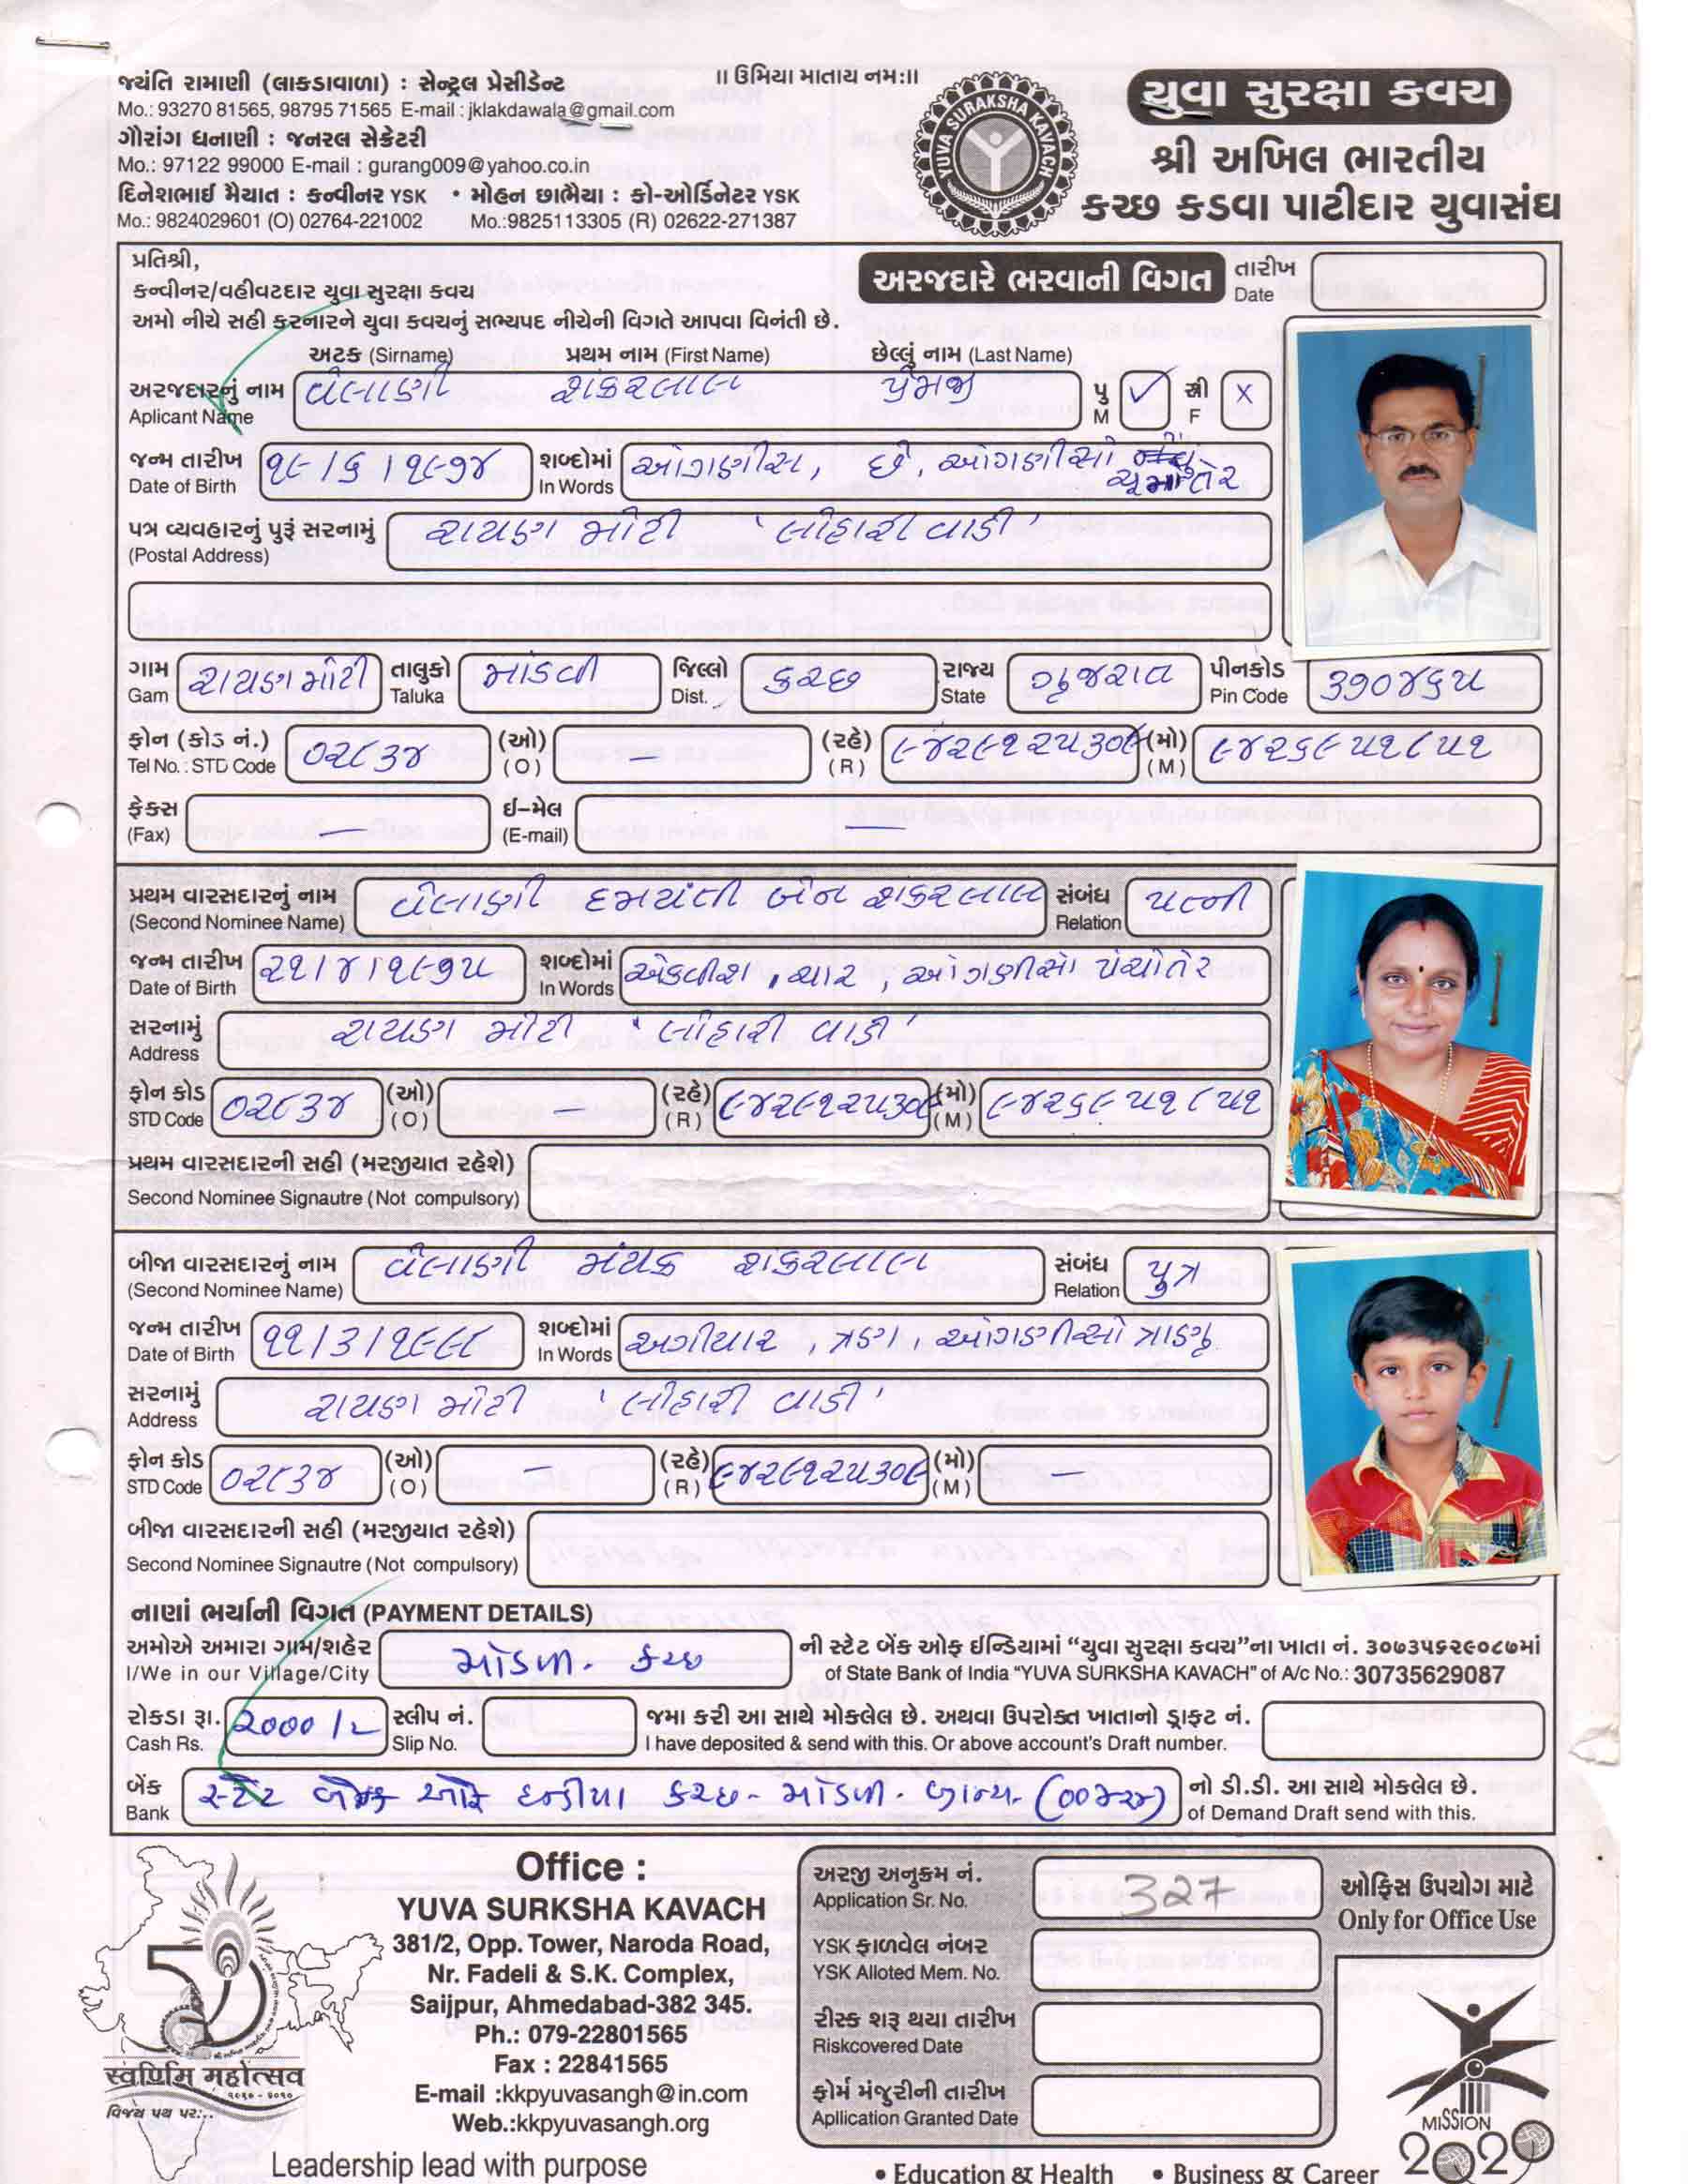 જયંતિ રામાણી (લાકડાવાળા) : સેન્ટ્રલ પ્રેસીડેન્ટ
Mo.: 93270 81565, 98795 71565 E-mail : jklakdawala@gmail.com
ગૌરાંગ ધનાણી : જનરલ સેક્રેટરી
Mo.: 97122 99000 E-mail : gurang009@yahoo.co.in
દિનેશભાઈ મૈયાત : કન્વીનર YSK • મોહન છાભૈયા : કો-ઓર્ડિનેટર YSK
Mo.: 9824029601 (O) 02764-221002 Mo.:9825113305 (R) 02622-271387
॥ ઉમિયા માતાય નમઃ॥
YUVA SURAKSHA KAVACH
યુવા સુરક્ષા કવચ
શ્રી અખિલ ભારતીય
કચ્છ કડવા પાટીદાર યુવાસંઘ
પ્રતિશ્રી,
કન્વીનર/વહીવટદાર યુવા સુરક્ષા કવચ
અમો નીચે સહી કરનારને યુવા કવચનું સભ્યપદ નીચેની વિગતે આપવા વિનંતી છે.
અરજદારે ભરવાની વિગત તારીખ Date
અટક (Sirname) પ્રથમ નામ (First Name) છેલ્લું નામ (Last Name)
અરજદારનું નામ Aplicant Name વેલાણી શંકરલાલ પ્રેમજી પુ M ✓ સ્ત્રી F x
જન્મ તારીખ Date of Birth ૧૯/૬/૧૯૭૪ શબ્દોમાં In Words ઓગણીસ, છ, ઓગણીસો ચૂમોતેર
પત્ર વ્યવહારનું પુરું સરનામું (Postal Address) રાયણ મોટી 'લીહારી વાડી'
ગામ Gam રાયણ મોટી તાલુકો Taluka માંડવી જિલ્લો Dist. કચ્છ રાજ્ય State ગુજરાત પીનકોડ Pin Code ૩૭૦૪૬૫
ફોન (કોડ નં.) Tel No.: STD Code ૦૨૮૩૪ (ઓ) (O) — (રહે) (R) ૯૪૨૯૧૨૫૩૦૯ (મો) (M) ૯૪૨૬૯૫૧૮૫૧
ફેક્સ (Fax) — ઈ-મેલ (E-mail) —
પ્રથમ વારસદારનું નામ (Second Nominee Name) વેલાણી દમયંતી બેન શંકરલાલ સંબંધ Relation પત્ની
જન્મ તારીખ Date of Birth ૨૧/૪/૧૯૭૫ શબ્દોમાં In Words એકવીશ, ચાર, ઓગણીસો પંચોતેર
સરનામું Address રાયણ મોટી 'લીહારી વાડી'
ફોન કોડ STD Code ૦૨૮૩૪ (ઓ) (O) — (રહે) (R) ૯૪૨૯૧૨૫૩૦૯ (મો) (M) ૯૪૨૬૯૫૧૮૫૧
પ્રથમ વારસદારની સહી (મરજીયાત રહેશે)
Second Nominee Signautre (Not compulsory)
બીજા વારસદારનું નામ (Second Nominee Name) વેલાણી મંયક શંકરલાલ સંબંધ Relation પુત્ર
જન્મ તારીખ Date of Birth ૧૧/૩/૧૯૯૮ શબ્દોમાં In Words અગીયાર, ત્રણ, ઓગણીસો
સરનામું Address રાયણ મોટી 'લીહારી વાડી'
ફોન કોડ STD Code ૦૨૮૩૪ (ઓ) (O) — (રહે) (R) ૯૪૨૯૧૨૫૩૦૯ (મો) (M) —
બીજા વારસદારની સહી (મરજીયાત રહેશે)
Second Nominee Signautre (Not compulsory)
નાણાં ભર્યાની વિગત (PAYMENT DETAILS)
અમોએ અમારા ગામ/શહેર માંડવી. કચ્છ ની સ્ટેટ બેંક ઓફ ઈન્ડિયામાં “યુવા સુરક્ષા કવચ”ના ખાતા નં. ૩૦૭૩૫૬૨૯૦૮૭માં
I/We in our Village/City of State Bank of India "YUVA SURKSHA KAVACH" of A/c No.: 30735629087
રોકડા રૂા. 2000/- સ્લીપ નં. જમા કરી આ સાથે મોકલેલ છે. અથવા ઉપરોક્ત ખાતાનો ડ્રાફ્ટ નં.
Cash Rs. Slip No. I have deposited & send with this. Or above account's Draft number.
બેંક સ્ટેટ બેન્ક ઓફ ઇન્ડીયા કચ્છ - માંડવી. બ્રાન્ચ નો ડી.ડી. આ સાથે મોકલેલ છે.
Bank of Demand Draft send with this.
સ્વર્ણિમ મહોત્સવ
૨૦૧૦ - ૨૦૧૦
વિજય પથ પર...
Office :
YUVA SURKSHA KAVACH
381/2, Opp. Tower, Naroda Road,
Nr. Fadeli & S.K. Complex,
Saijpur, Ahmedabad-382 345.
Ph.: 079-22801565
Fax : 22841565
E-mail :kkpyuvasangh@in.com
Web.:kkpyuvasangh.org
Leadership lead with purpose
અરજી અનુક્રમ નં. Application Sr. No. 327
YSK ફાળવેલ નંબર YSK Alloted Mem. No.
રીસ્ક શરૂ થયા તારીખ Riskcovered Date
ફોર્મ મંજુરીની તારીખ Apllication Granted Date
ઓફિસ ઉપયોગ માટે
Only for Office Use
MISSION
2020
• Education & Health • Business & Career